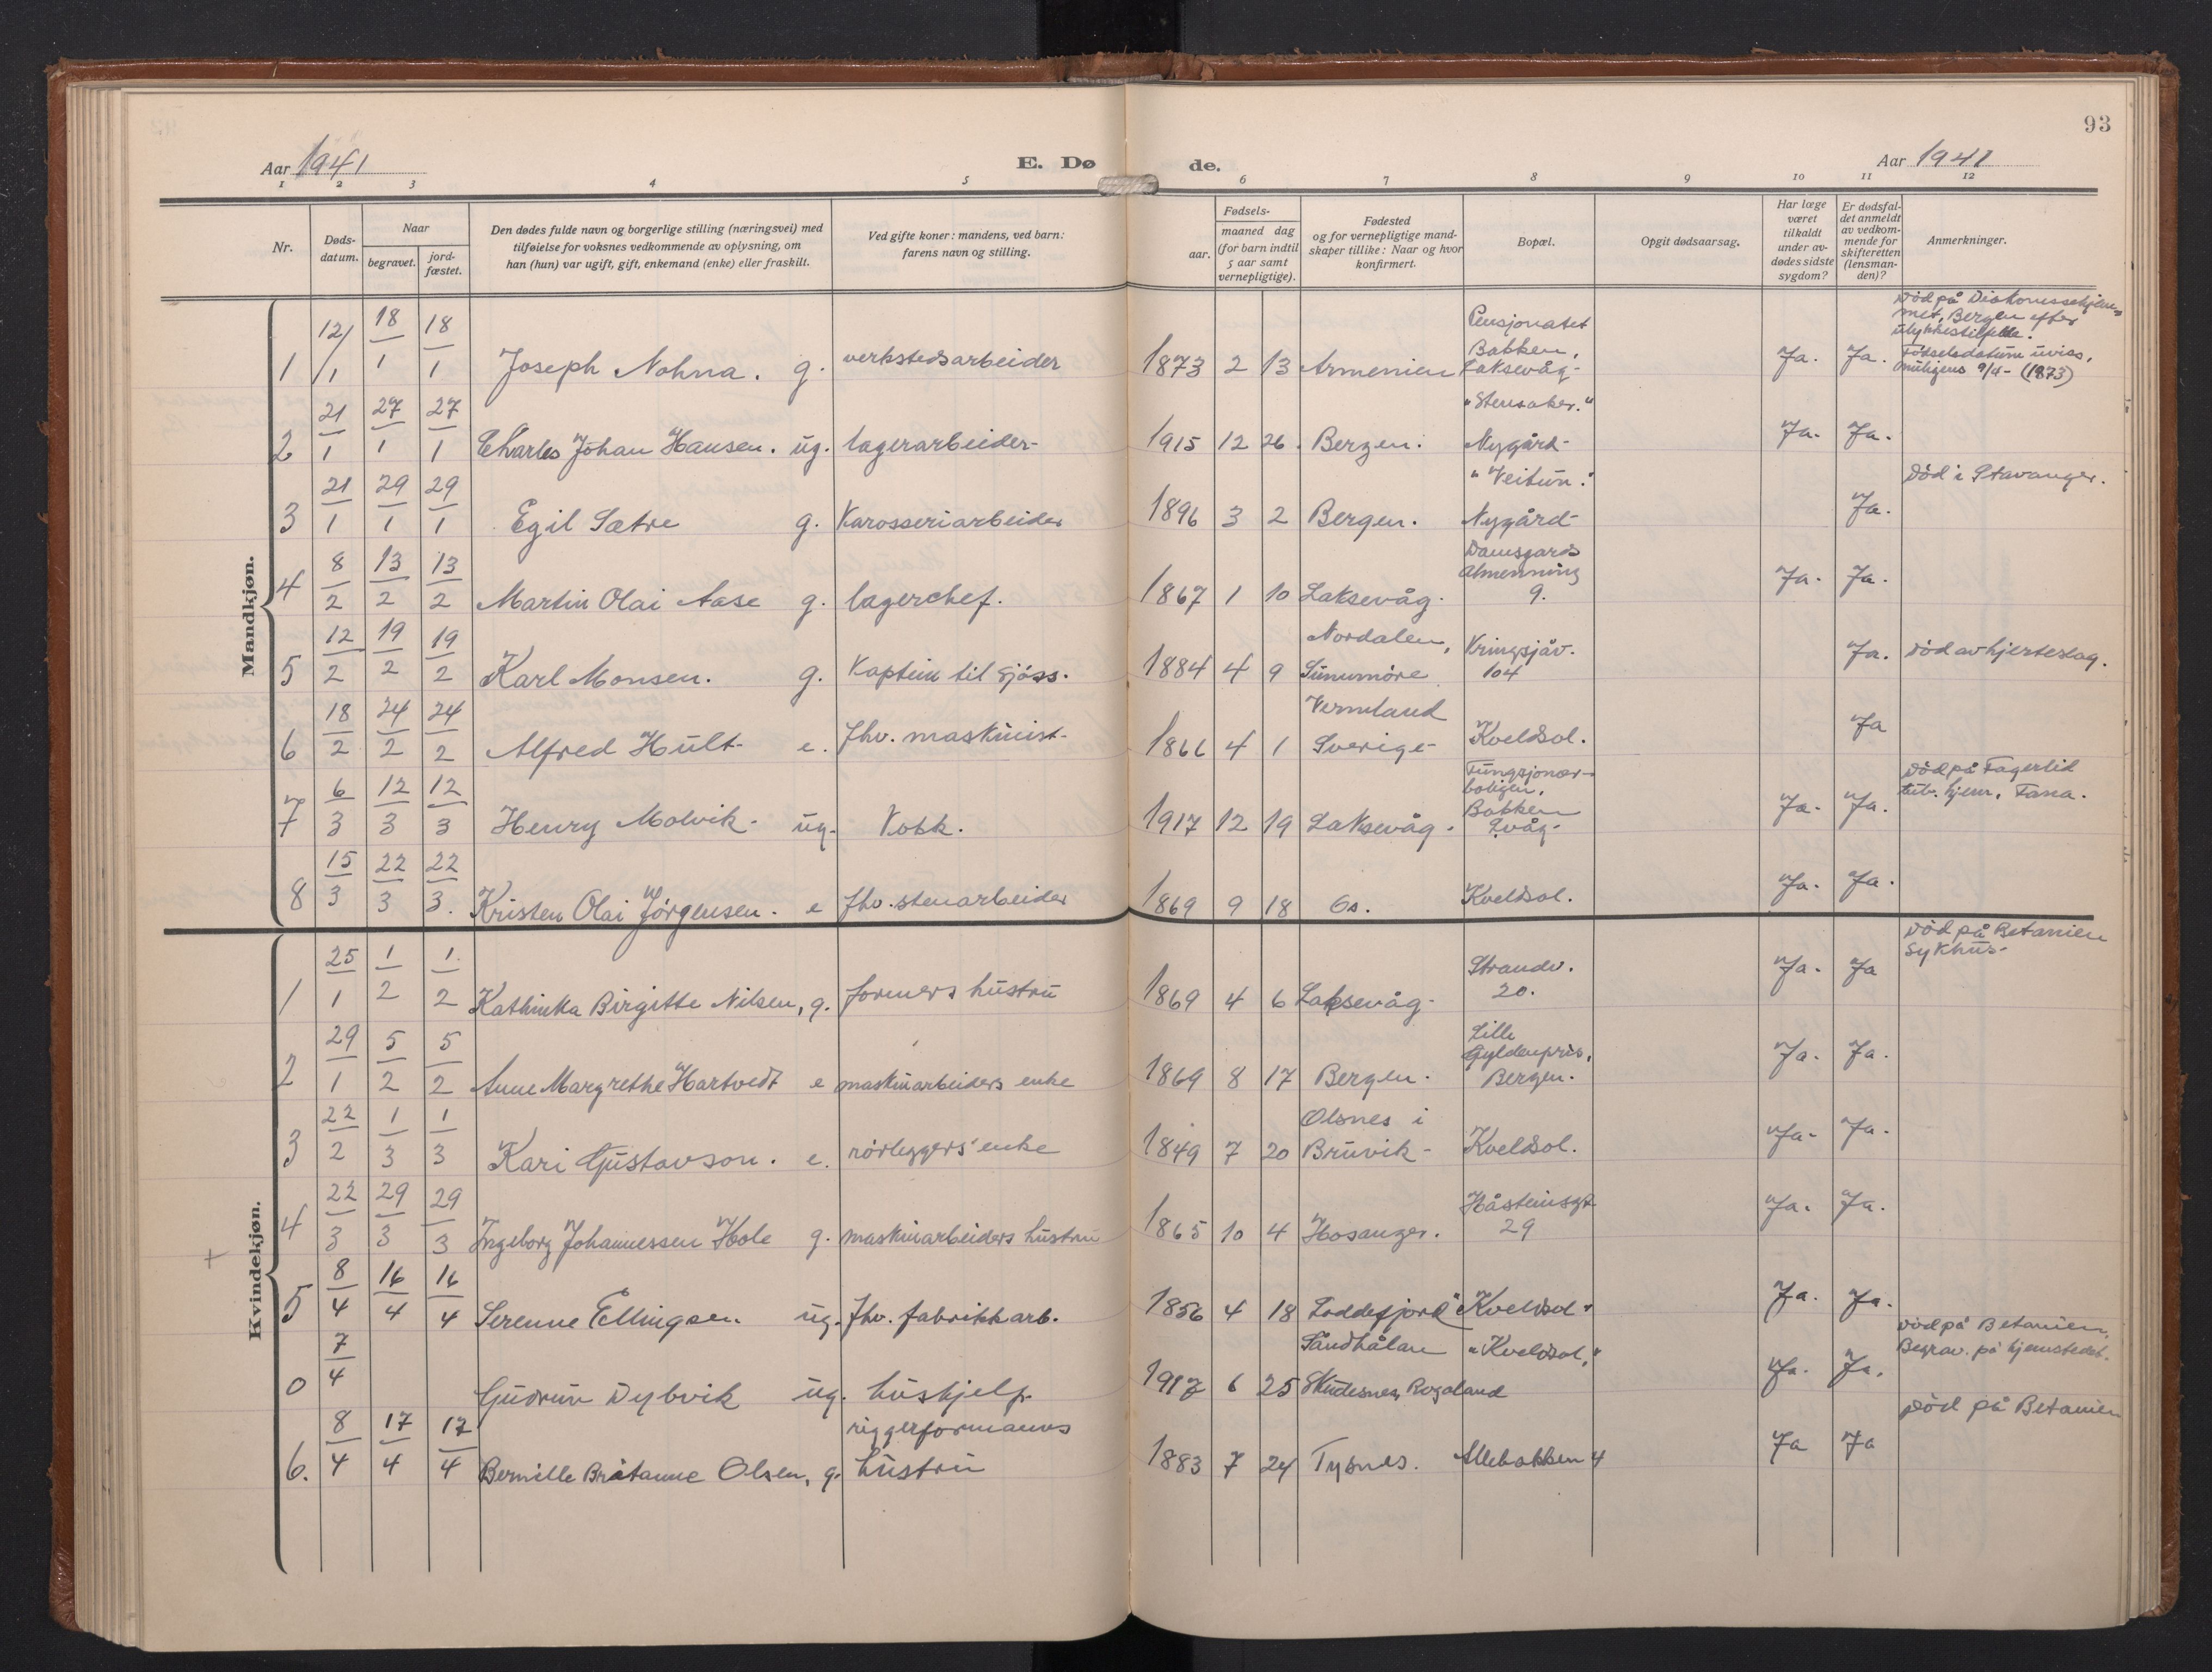 93
Aar 1941
E. Dø
de.
Aar 1941
1 2 3 4 5 6 7 8 9 10 11 12
Nr.
Døds-
datum.
Naar
begravet.
jord-
fæstet.
Den dødes fulde navn og borgerlige stilling (næringsvei) med
tilføielse for voksnes vedkommende av oplysning, om
han (hun) var ugift, gift, enkemand (enke) eller fraskilt.
Ved gifte koner: mandens, ved barn:
farens navn og stilling.
Fødsels-
aar.
maaned dag
(for barn indtil
5 aar samt
vernepligtige).
Fødested
og for vernepligtige mand-
skaper tillike: Naar og hvor
konfirmert.
Bopæl.
Opgit dødsaarsag.
Har læge
været
tilkaldt
under av-
dødes sidste
sygdom?
Er dødsfal-
det anmeldt
av vedkom-
mende for
skifteretten
(lensman-
den)?
Anmerkninger.
Mandkjøn.
1 12/1 18/1 18/1 Joseph Nohna. g. verkstedsarbeider 1873 2 13 Armenien
Pensjonatet
Bakken,
Laksevåg-
Ja. Ja.
Död på Diakonissehjem-
met, Bergen efter
ulykkestilfelle.
Fødselsdatum uviss,
muligens 9/4- (1873)
2 21/1 27/1 27/1 Charles Johan Hansen. ug. lagerarbeider- 1915 12 26. Bergen.
"Stensaker."
Nygård-
Ja. Ja.
3 21/1 29/1 29/1 Egil Sætre g. Karosseriarbeider 1896 3 2 Bergen.
"Veitun."
Nygård-
Ja.
Död i Stavanger.
4 8/2 13/2 13/2 Martin Olai Aase g. lagerchef. 1867 1 10 Laksevåg.
Damsgards
Almenning
9.
Ja. Ja.
5 12/2 19/2 19/2 Karl Monsen. g. Kaptein til sjøss. 1884 4 9
Nordalen,
Sunnmöre
Kringsjåv.
104
Ja. Död av hjerteslag.
6 18/2 24/2 24/2 Alfred Hult- e. fhv. maskinist- 1866 4 1
Vermland
Sverige-
Kveldsol.
Ja
7 6/3 12/3 12/3 Henry Molvik- ug. Kokk. 1917 12 19 Laksevåg.
Fungsjonær-
boligen,
Bakken
Lvåg-
Ja. Ja.
Död på Fagerlid
tub. hjem, Fana.
8 15/3 22/3 22/3. Kristen Olai Jörgensen. e fhv. stenarbeider 1869 9 18 Os. Kveldsol. Ja. Ja.
Kvindekjøn.
1 25/1 1/2 1/2 Kathinka Birgitte Nilsen, g. formers hustru 1869 4 6 Laksevåg-
Strandv.
20.
Ja. Ja
Död på Betanien
sykhus-
2 29/1 5/2 5/2 Anne Margrethe Hartvedt e maskinarbeiders enke 1869 8 17 Bergen.
Lille
Gyldenpris,
Bergen.
Ja. Ja.
3 22/2 1/3 1/3 Kari Gustavson. e. rörleggers' enke 1849 7 20
Olsnes i
Bruvik-
Kveldsol. Ja- Ja.
4 22/3 29/3 29/3 Ingeborg Johannessen Hole g. maskinarbeiders hustru 1865 10 4 Hosanger.
Håsteinsgt
29
Ja. Ja.
+
5 8/4 16/4 16/4 Serenne Ellingsen ug. fhv. fabrikkarb. 1856 4 18 Loddefjord "Kveldsol" Ja. Ja.
0 7/4 Gudrun Dybvik ug. hushjelp. 1917 6 25
Sandhålan
Skudesnes, Rogaland
"Kveldsol,"
Ja. Ja.
Död på Betanien.
Begrav. på hjemstedet.
6. 8/4 17/4 17/4 Bernille Britanne Olsen, g.
riggerformanns
hustru
1883 7 24 Tysnes. Allebakken 4 Ja Ja
Död på Betanien